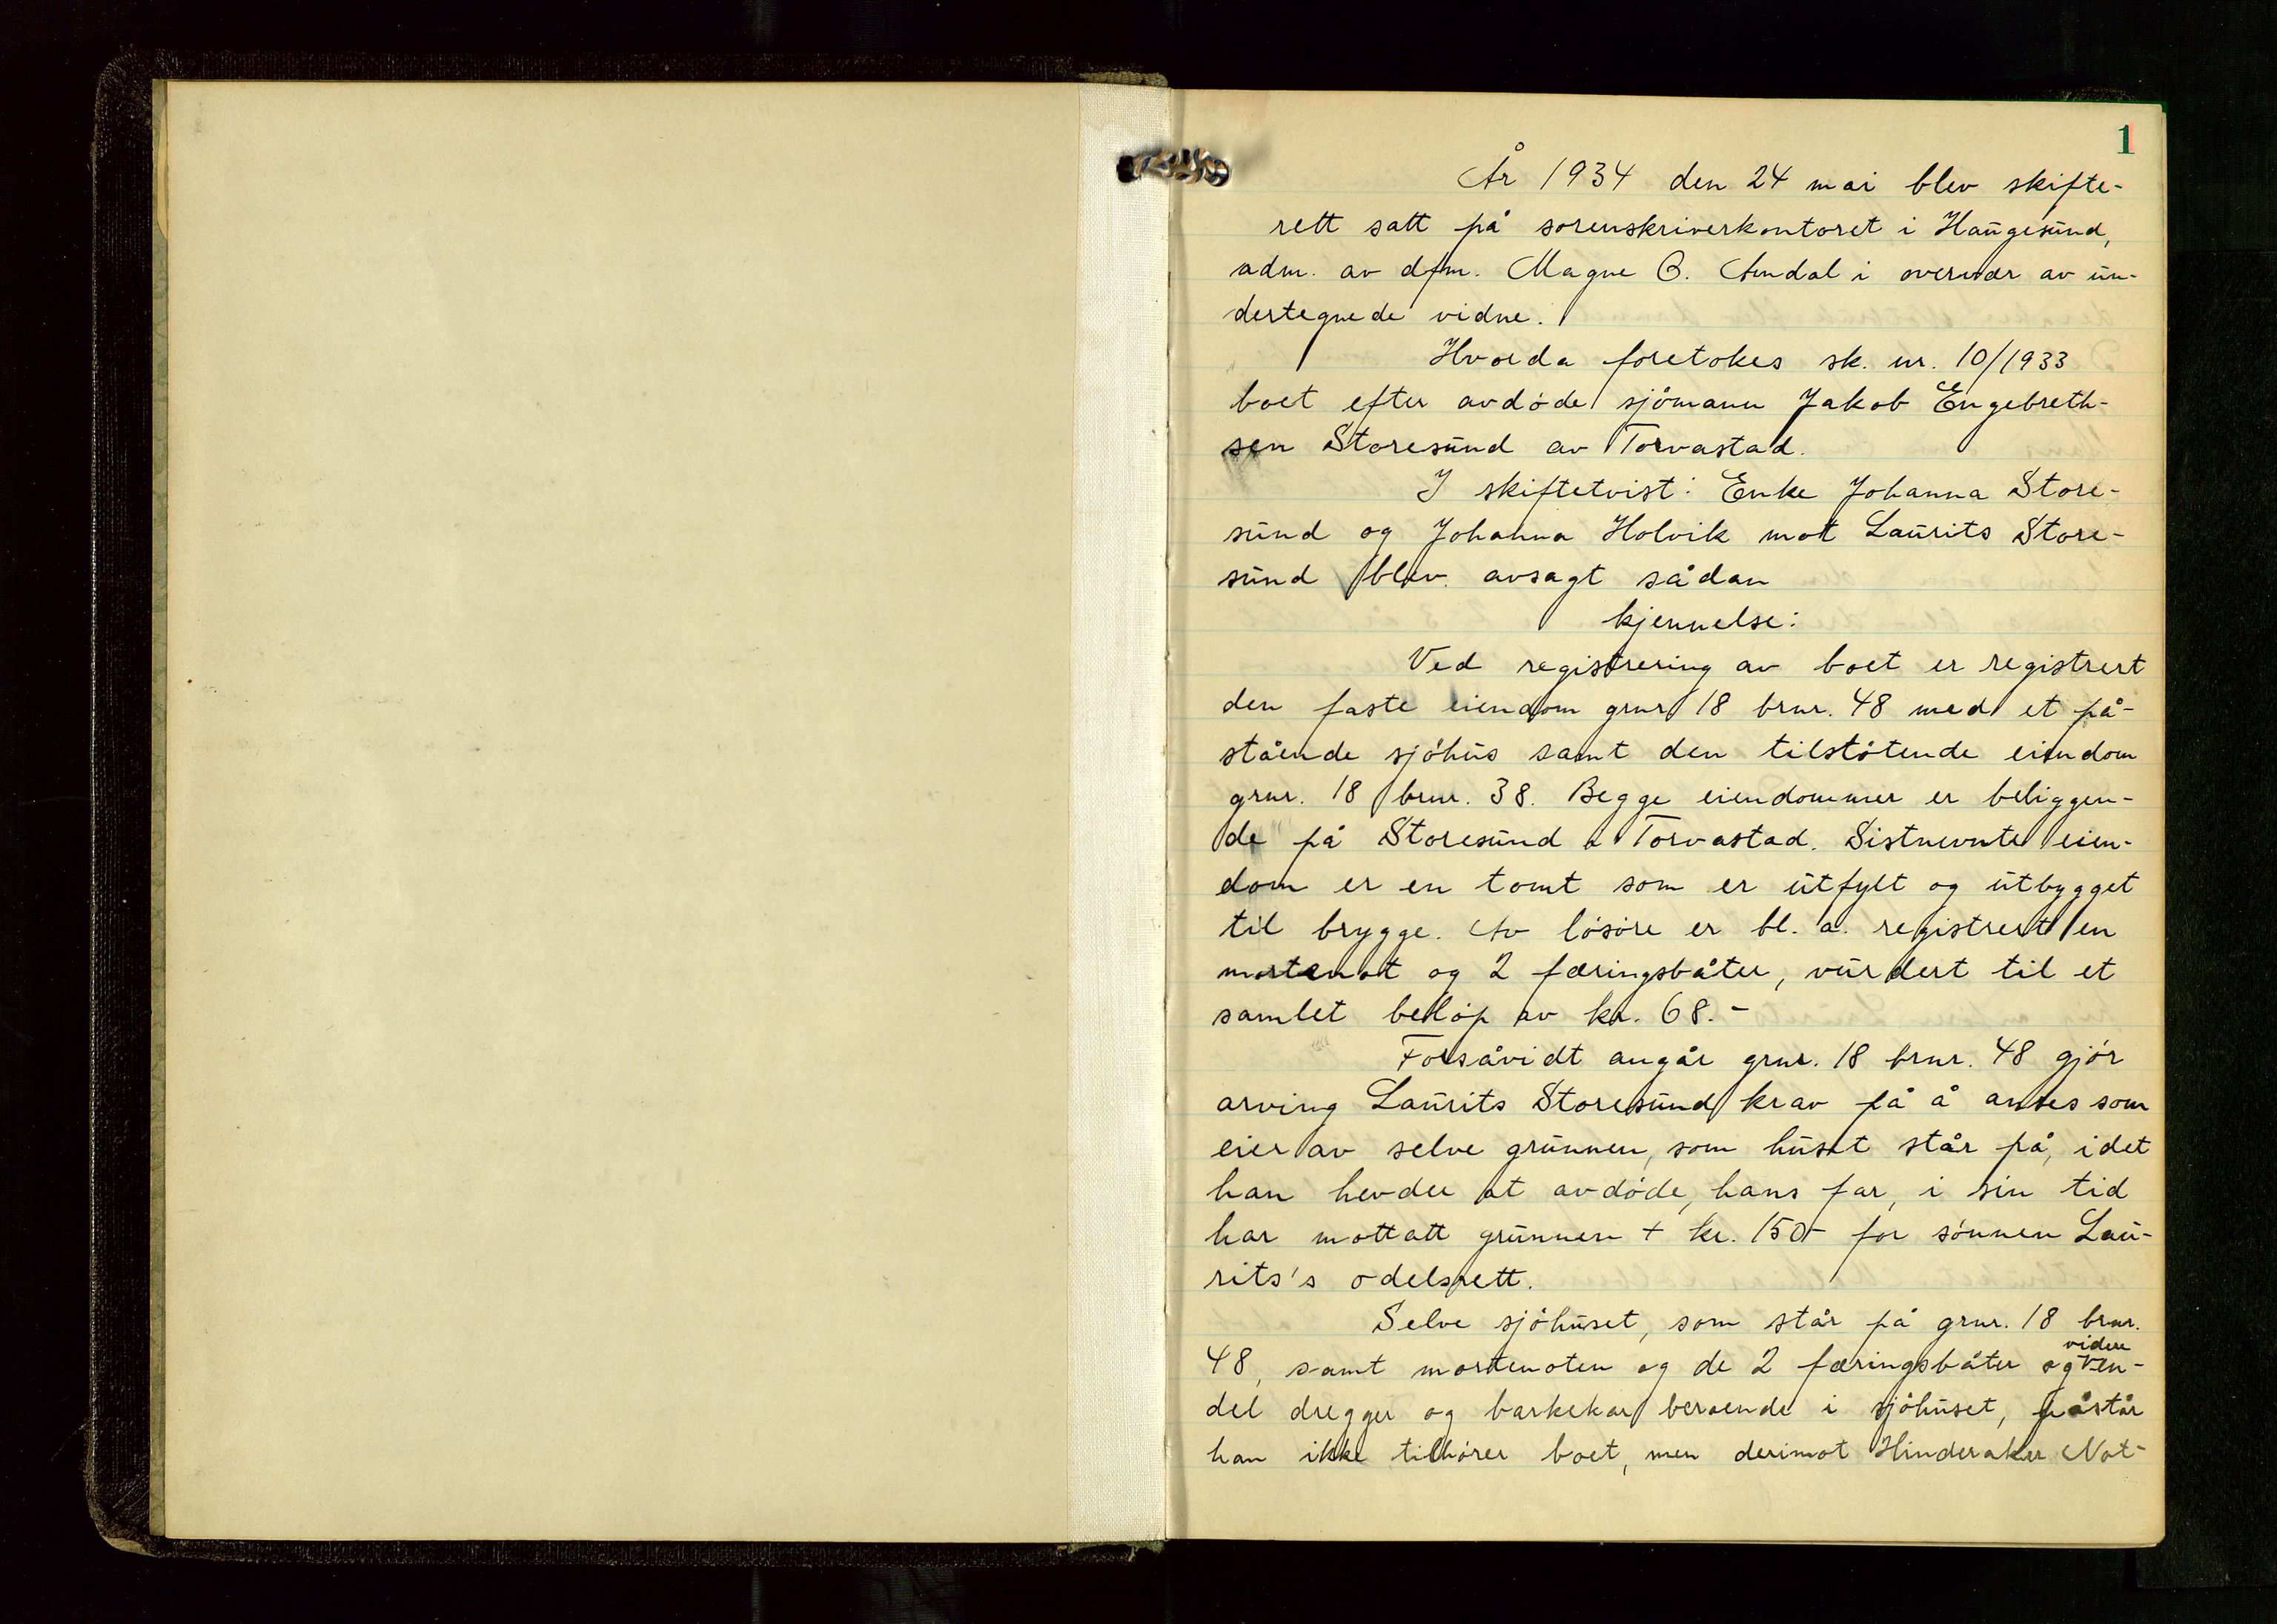 1
År 1934 den 24 mai blev skifte-
rett satt på sorenskriverkontoret i Haugesund,
adm. av dfm. Magne B. Amdal i overvær av un-
dertegnede vidne.
Hvorda foretokes sk. nr. 10/1933
boet efter avdøde sjömann Jakob Engebreth-
sen Storesund av Torvastad.
I skiftetvist: Enke Johanna Store-
sund og Johanna Holvik mot Laurits Store-
sund blev avsagt sådan
kjennelse:
Ved registrering av boet er registrert
den faste eiendom grnr 18 brnr. 48 med et på-
stående sjöhus samt den tilstötende eiendom
grnr. 18 brnr. 38. Begge eiendommer er beliggen-
de på Storesund i Torvastad. Sistnevnte eien-
dom er en tomt som er utfylt og utbygget
til brygge. Av lösöre er bl. a. registrert en
mortenot og 2 færingsbåter, vurdert til et
samlet belöp av kr. 68.-
Forsåvidt angår grnr. 18 brnr. 48 gjör
arving Laurits Storesund krav på å anses som
eier av selve grunnen, som huset står på, idet
han hevder at avdöde, hans far, i sin tid
har mottatt grunnen + kr. 150- for sönnen Lau-
rits's odelsrett.
Selve sjöhuset, som står på grnr. 18 brnr.
48, samt mortenoten og de 2 færingsbåter og videre en-
del dregger og barkekar beroende i sjöhuset, påstår
han ikke tilhörer boet, men derimot Hinderaker Not-